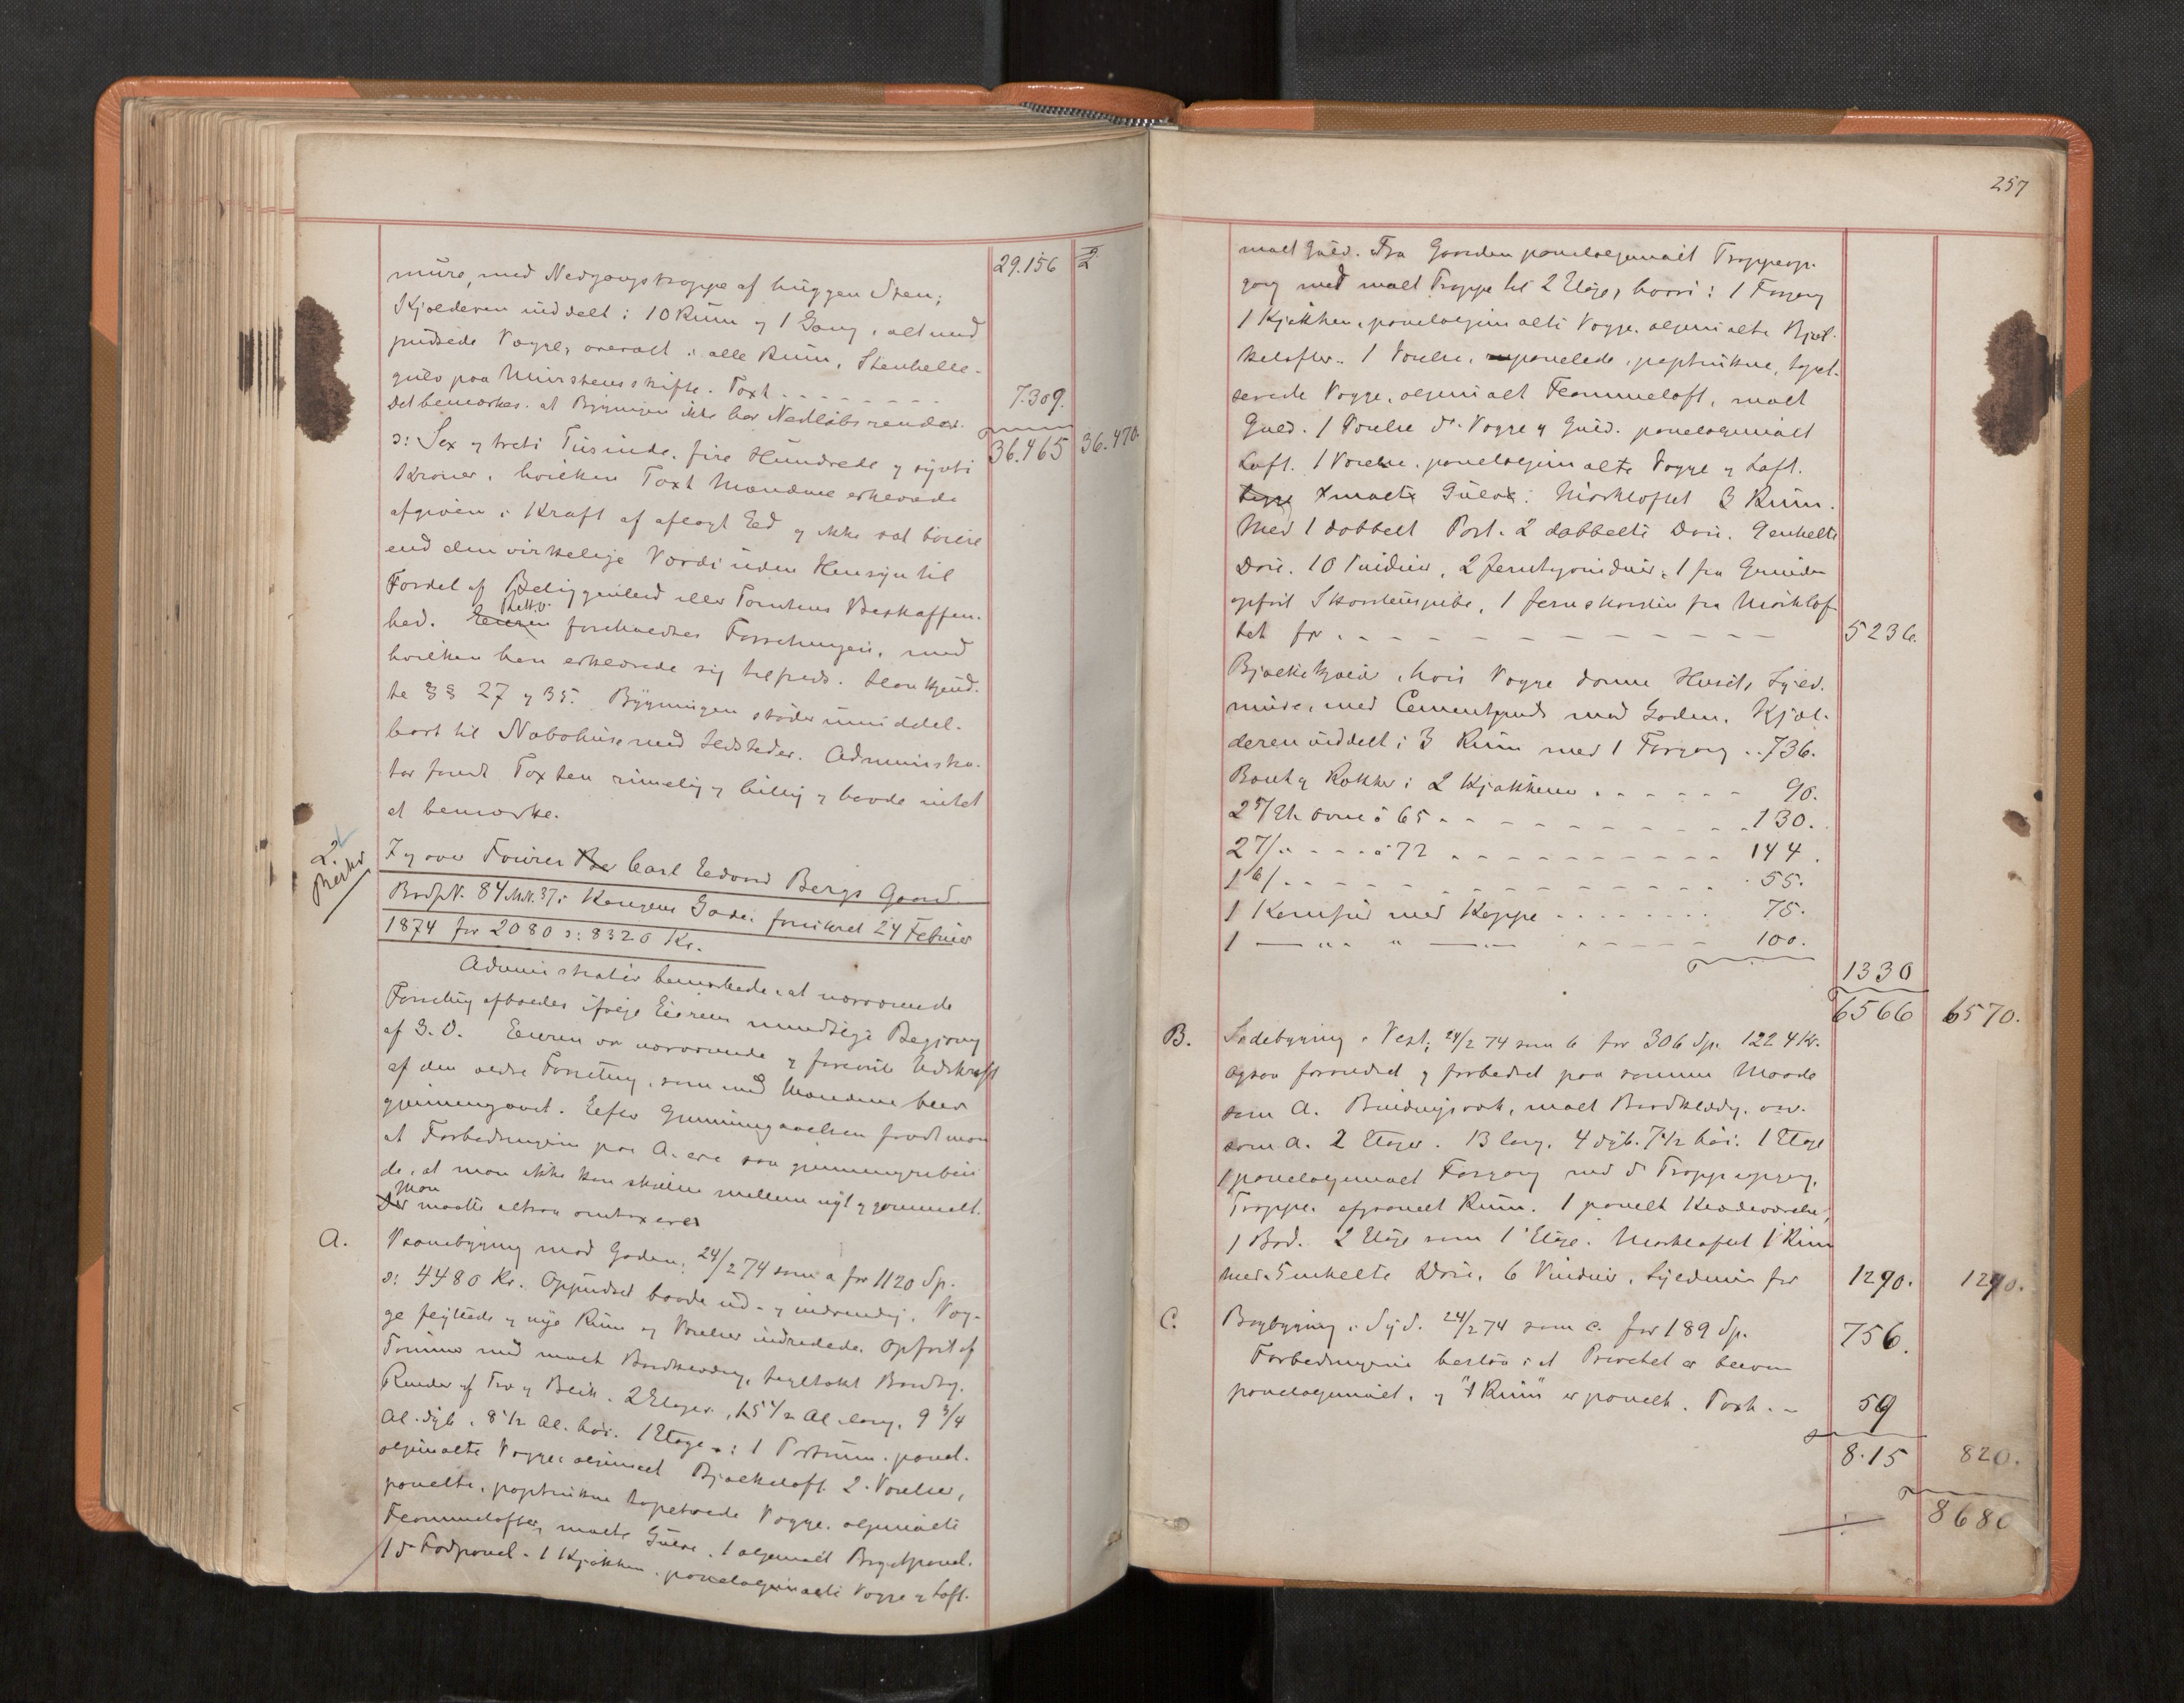 mure, med Nedgangstrappe af huggen Sten; 29.156
Kjælderen inddelt i 10 Rum og 1 Gang, alt med
pudsede Vægge, overalt i alle Rum, Stenhelle-
gulv paa Murstensskifte. Taxt 7.309.
Det bemærkes at Bygningen ikke har Nedløbsrender.
36.465 36.470
ɔ: Sex og treti Tusinde, fire Hundrede og sytti
Kroner, hvilken Taxt Mændene erklærede
afgiven i Kraft af aflagt Ed og ikke sat høiere
end den virkelige Værdi uden Hensyn til
Fordel af Beliggenhed eller Tomtens Beskaffen-
hed. Eieren foreholdtes Forretningen, med
hvilken han erklærede sig tilfreds. Han kjend-
te §§ 27 og 35. Bygningen støder umiddel-
bart til Nabohuse med Ildsteder. Administra-
tor fandt Taxten rimelig og billig og havde intet
at bemærke.
2.
I og over Fourer Carl Edvard Bergs Gaard
BrdfN. 84 M.N. 37 i Kongens Gade, forsikret 24 Februar
1874 for 2080 ɔ: 8320 Kr.
Administrator bemærkede, at nærværende
Forretning afholdes ifølge Eierens mundtlige Begjæring
af G. D. Eieren var nærværende og foreviste Udskrift
af den ældre Forretning, som med Mændene blev
gjennemgaaet. Efter Gjennemgaaelsen fandt man
at Forbedringerne paa A. ere saa gjennemgriben-
de, at man ikke kan skjelne mellem nyt og gammelt.
Man
maatte altsaa omtaxeres
A. Vaanebygning mod Gaden, 24/2 74 som a for 1120 Sp.
ɔ: 4480 Kr. Oppudset baade ud- og indvendig, Væg-
ge flyttede og nye Rum og Værelser indredede. Opført af
Tømmer med malt Bordklædning, tegltækt Bordtag,
Render af Træ og Blik. 2 Etager, 15 1/2 Al. lang, 9 3/4
Al. dyb, 8 1/2 Al. høi. 1 Etage: 1 Portrum, panel-
oljemalte Vægge, oljemalt Bjælkeloft. 2 Værelser,
panelte, paptrukne tapetserede Vægge, oljemalte
Flammelofter, malte Gulve, 1 oljemalt Brystpanel,
1 do Fodpanel. 1 Kjøkken, paneloljemalte Vægge og Loft.
257
malt Gulv. Fra Gaarden paneloljemalt Trappeop-
gang med malt Trappe til 2 Etage, hvori: 1 Forgang
1 Kjøkken, paneloljemalte Vægge, oljemalte Bjæl-
kelofter. 1 Værelse, panelede, paptrukne, tapet-
serede Vægge, oljemalt Flammeloft, malt
Gulv. 1 Værelse do. Vægge og Gulv. paneloljemalt
Loft. 1 Værelse, paneloljemalte Vægge og Loft.
malt Gulv. Mørkloftet 3 Rum.
Med 1 dobbelt Port. 2 dobbelte Døre. 9 enkelte
Døre. 10 Vinduer, 2 Jerntagvinduer, 1 fra Grunden
opført Skorstenspibe, 1 Jernskorsten fra Mørklof-
tet for 5236.
Bjælkekjælder, hvis Vægge danne Husets Syld-
mure, med Cementpuds mod Gaden. Kjæl-
deren inddelt i 3 Rum med 1 Forgang 736.
i 2 Kjøkkener 90.
2 Et. Ovne à 65 130.
2 à 72 144.
1 55.
1 Komfur med Kappe 75.
1 100.
1330
6566 6570.
B. Sidebygning i Vest, 24/2 74 som b for 306 Sp. 1224 Kr.
ogsaa forandret og forbedret paa samme Maade
som A. Bindingsværk, malt Bordklædn. osv.
som a. 2 Etager. 13 lang, 4 dyb, 7 1/2 høi. 1 Etage
1 paneloljemalt Forgang med do Trappeopgang,
Trappe, afpanelt Rum. 1 panelt Klædeværelse,
1 Bod. 2 Etage som 1 Etage. Mørkloftet 1 Rum
med 5 enkelte Døre, 6 Vinduer, Syldmur for 1290. 1290.
C. Bagbygning i Syd. 24/2 74 som c. for 189 Sp. 756.
Forbedringerne bestaa i at Privetet er bleven
paneloljemalt, og "1 Rum" er panelt. Taxt 59
8.15 820.
8680